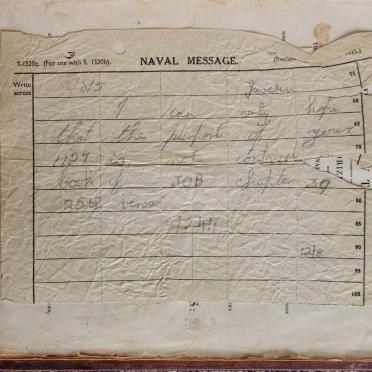 S.1320c. (For use with S. 1320b). NAVAL MESSAGE.
Write across
CS15 Javelin
55
I can only hope
60
that the purport of yours
1127 is not contained
70
book of JOB chapter 39
25th verse
80
1244
85
12/8
90
95
100